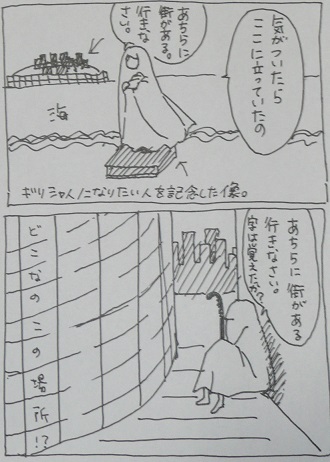 気がついたら
ここに立っていたの
あちらに
街がある。
行きな
さい。
海
ギリシャ人になりたい人を記念した像。
あちらに街がある
行きなさい。
字は覚えたか?
どこなのこの場所!?